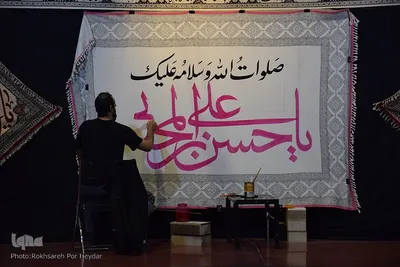 صلوات الله وسلامه علیک
یا حسن بن علی المجتبی
iqna
Photo:Rokhsareh Por Heydar